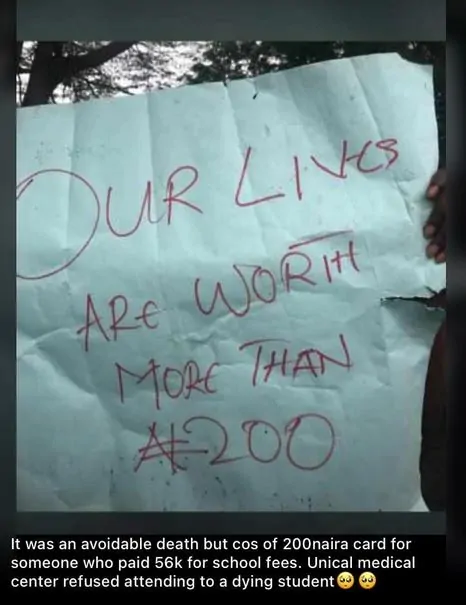 OUR LIVES
ARE WORTH
MORE THAN
₦200
It was an avoidable death but cos of 200naira card for
someone who paid 56k for school fees. Unical medical
center refused attending to a dying student🥺🥺